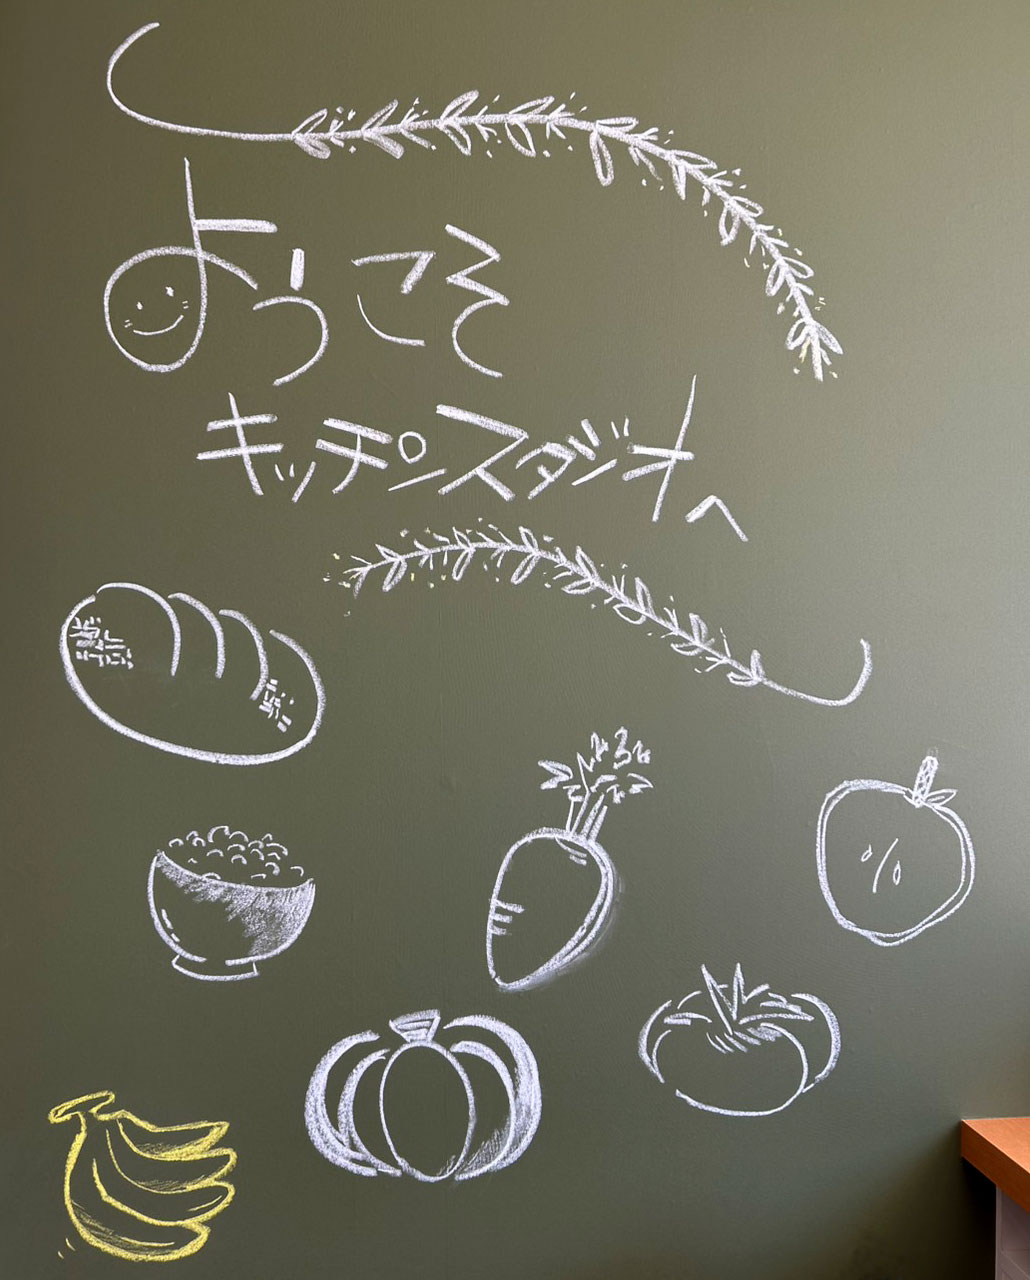 ようこそ
キッチンスタジオへ